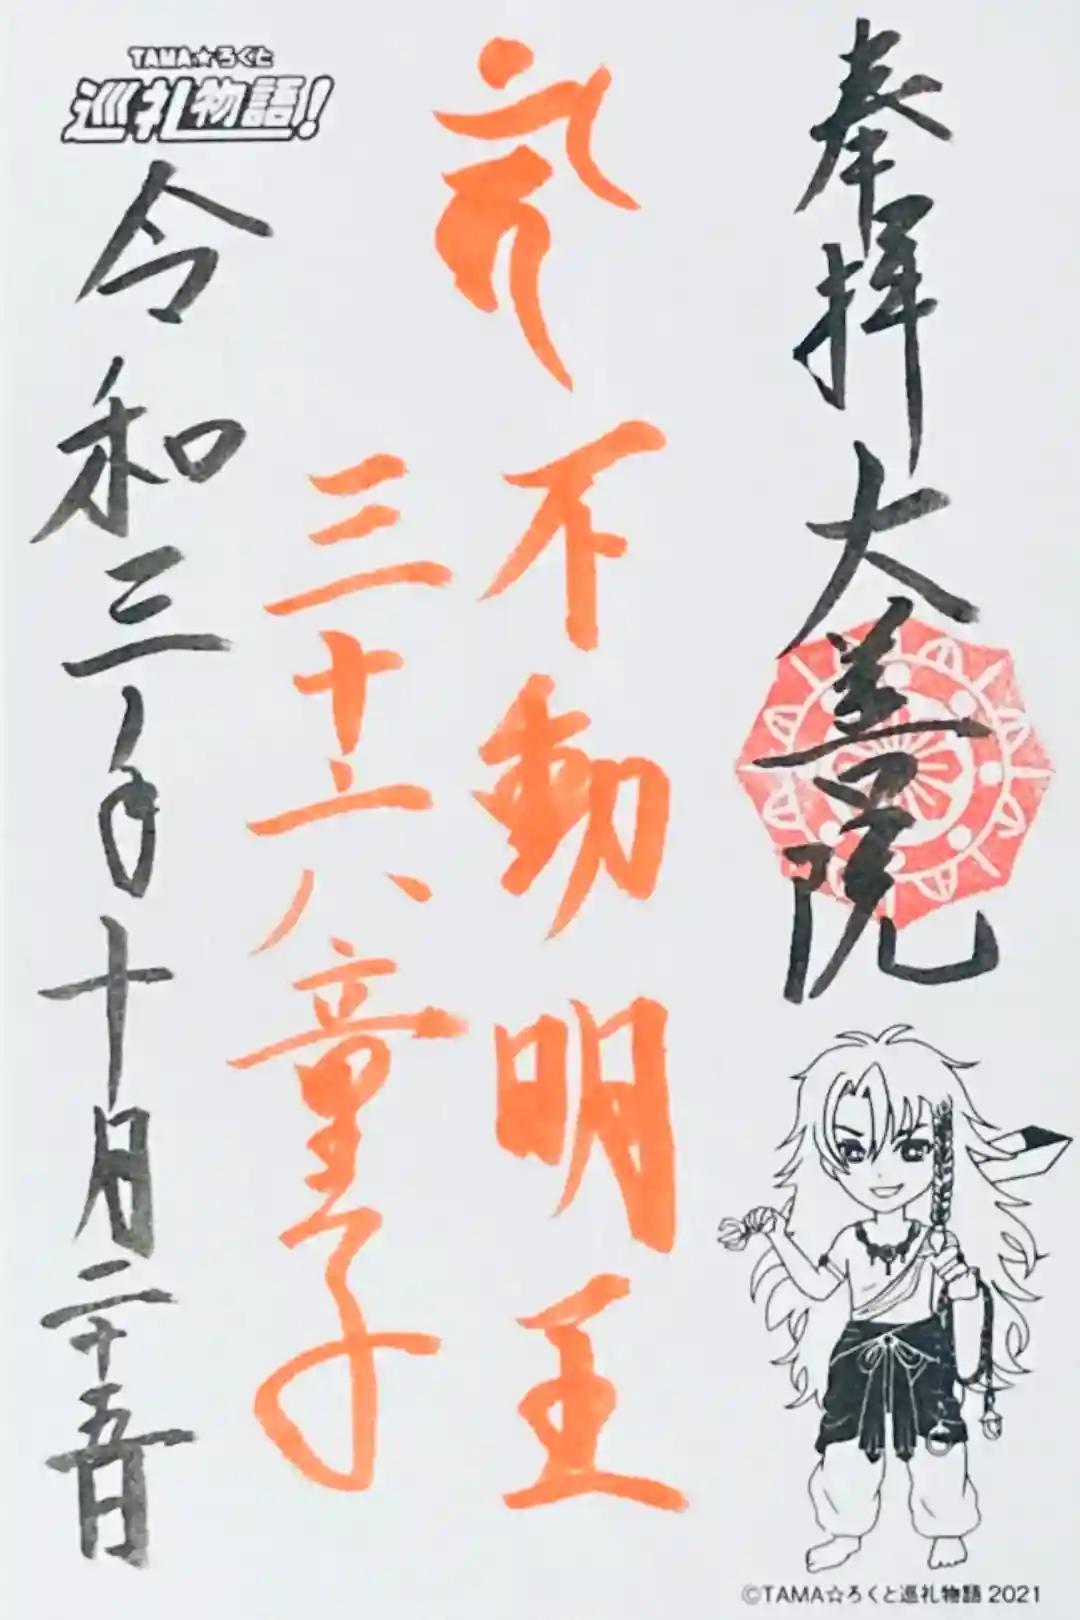 奉拝
大善院
不動明王
三十六童子
TAMA☆ろくと
巡礼物語!
令和三年十月二十五日
©TAMA☆ろくと巡礼物語 2021